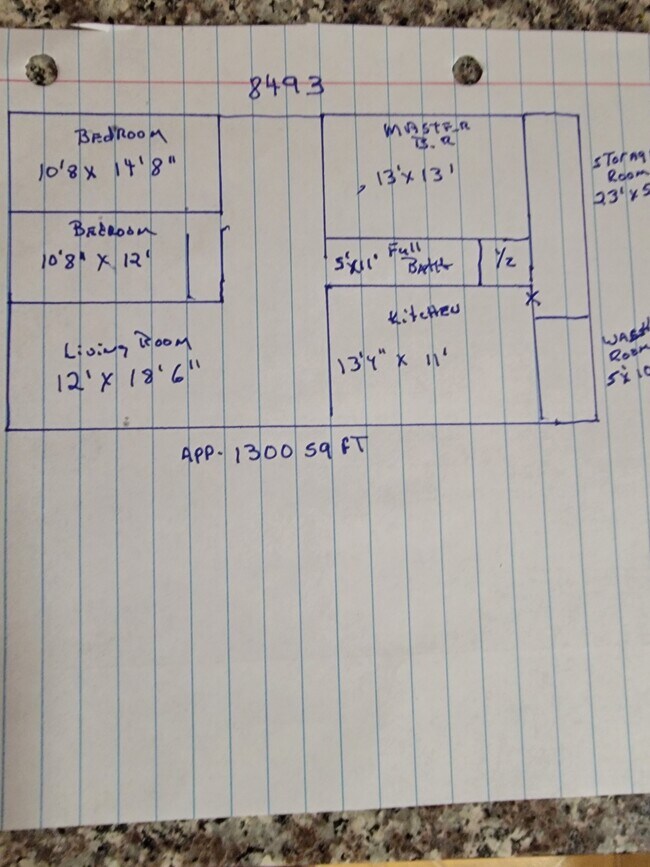 8493
BEDROOM
10'8 X 14'8"
MASTER
B.R
13' X 13'
STORAG
ROOM
23' X 5
BEDROOM
10'8" X 12'
5'X11' Full
BATH
1/2
X
KitcHEN
13'4" X 11'
Living Room
12' X 18'6"
WASH
ROOM
5'X 10
APP. 1300 SQ FT